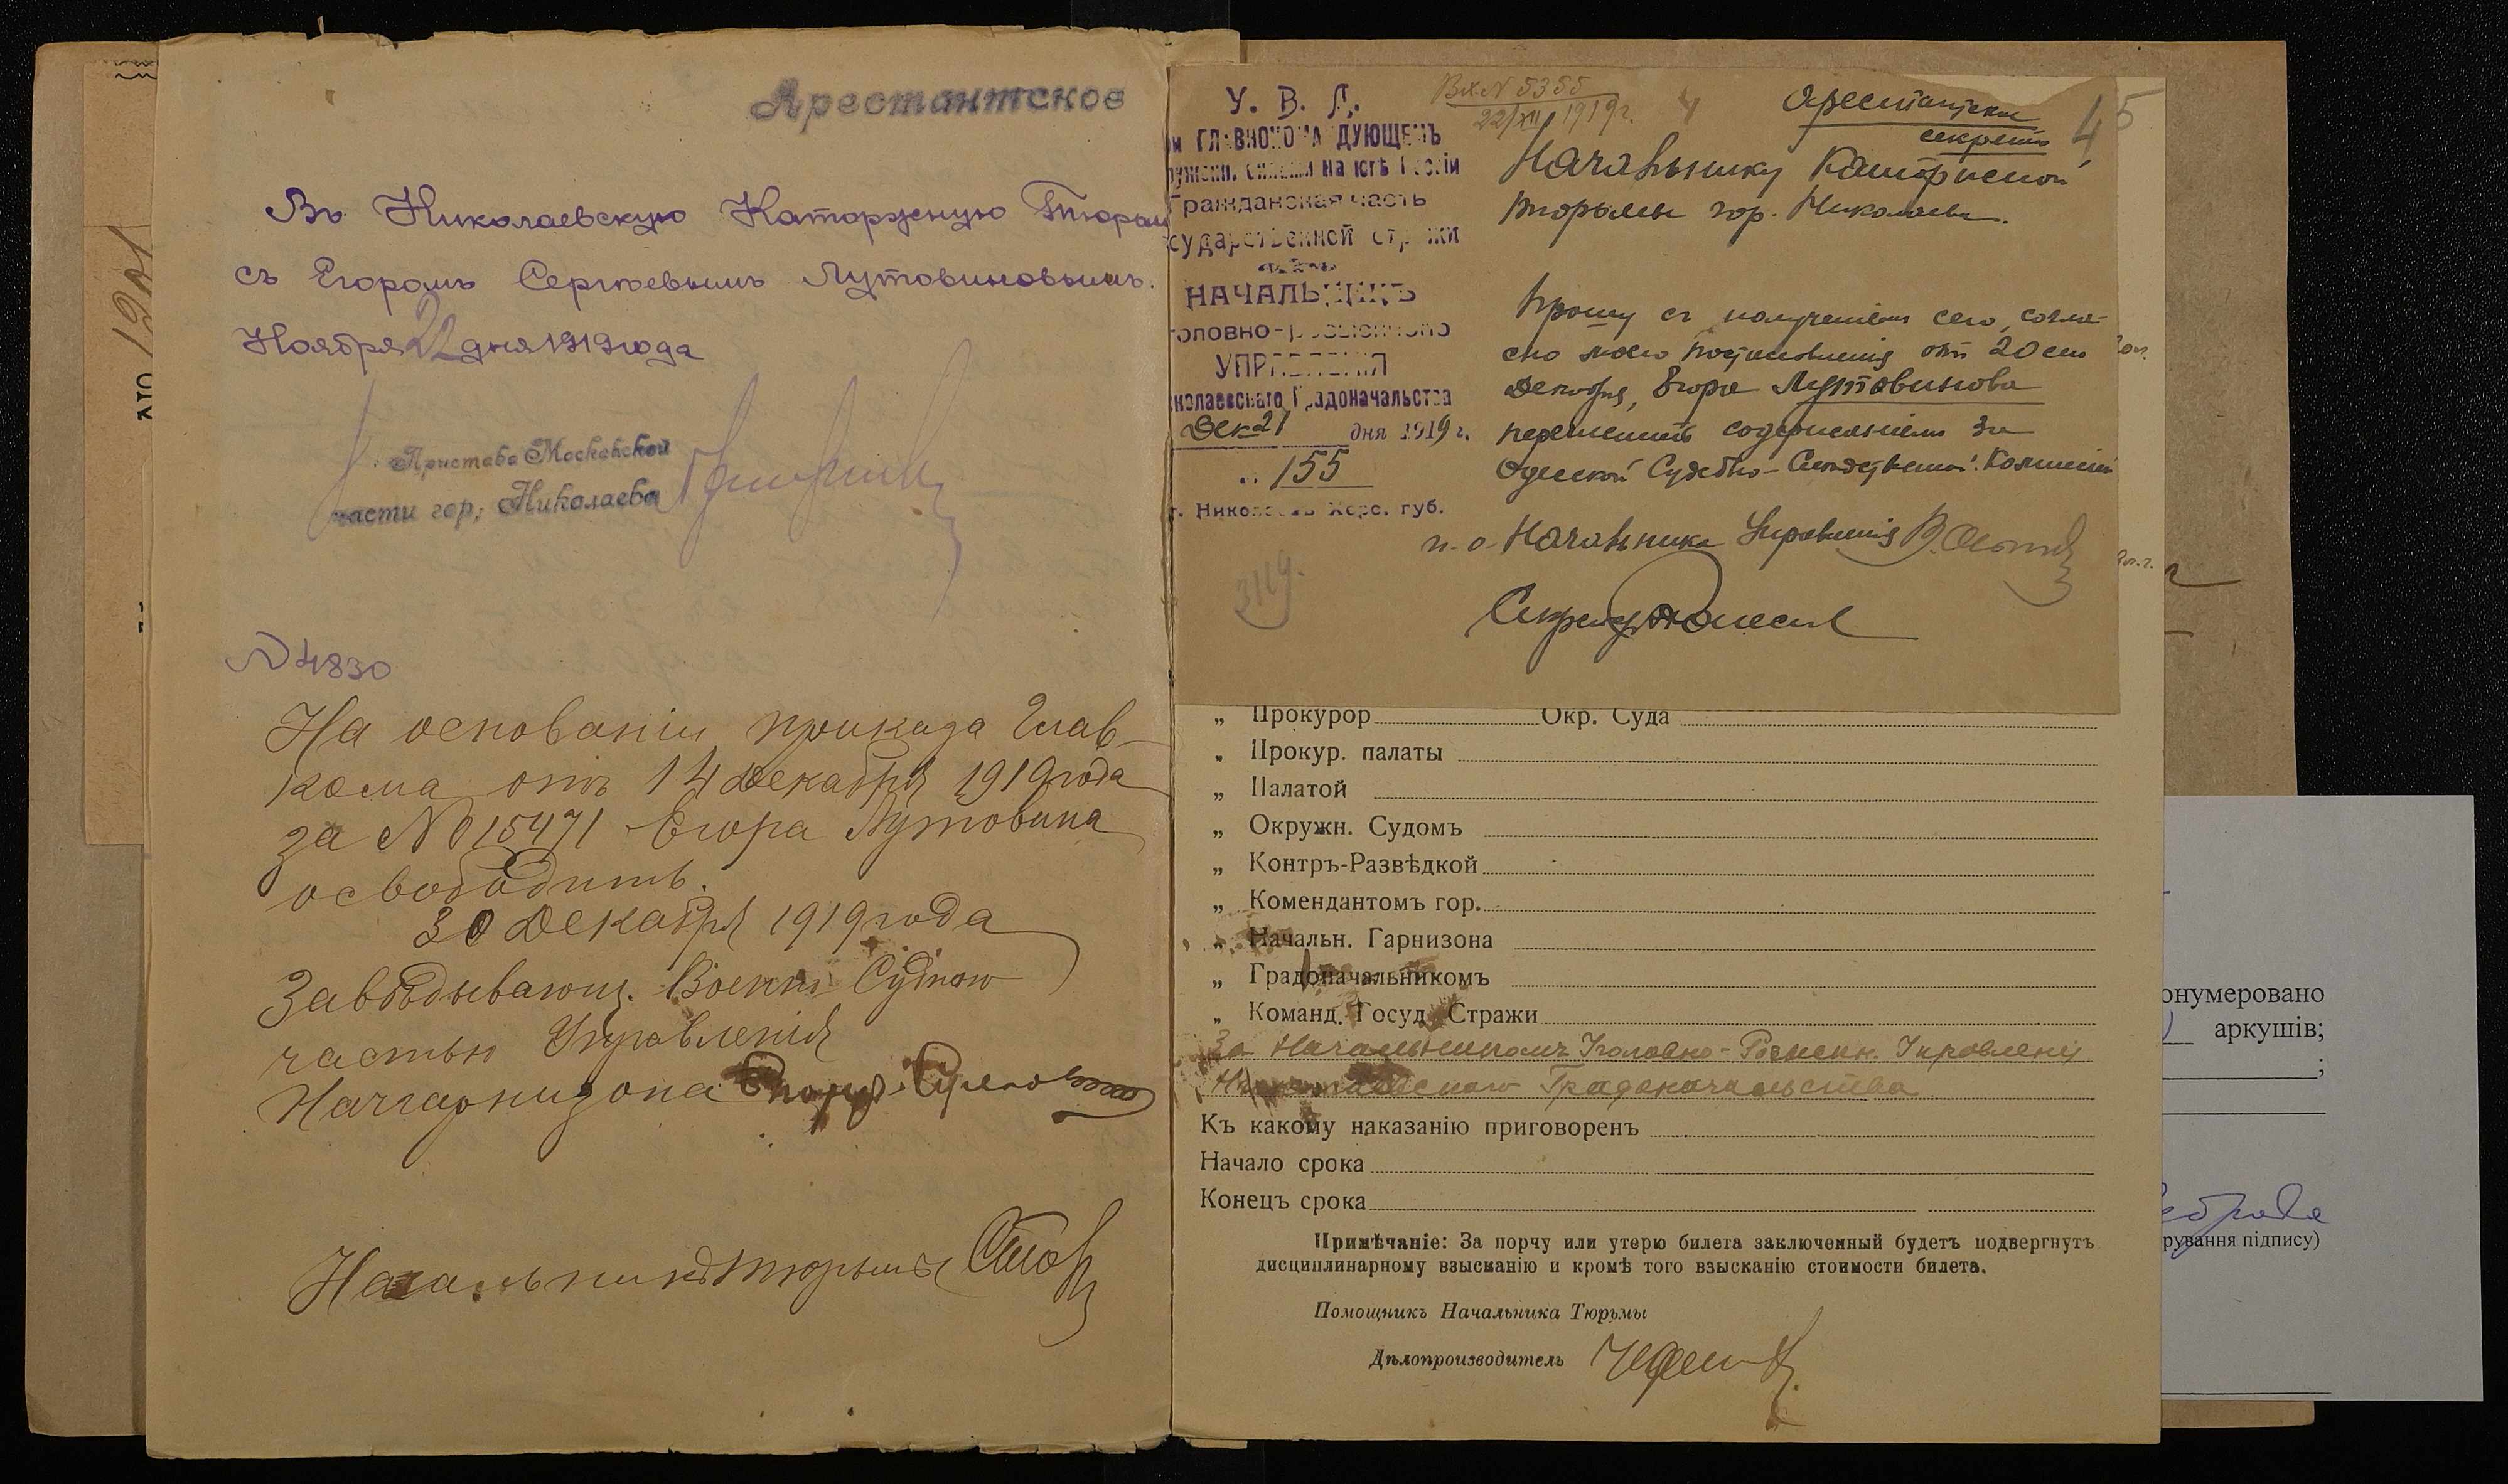 Арестантское
Въ Николаевскую Каторжную Тюрьм
съ Егоромъ Сергѣевымъ Лутовиновымъ.
Ноября 22 дня 1919 года
Пристава Московской
части гор. Николаева
N 4830
На основаніи приказа Глав-
кома отъ 14 декабря 1919 года
за № 15471 Егора Лутовина
освободить.
30 Декабря 1919 года
Завѣдывающ. Военно Судною
частью Управленія
Начгарнизона
Начальникъ тюрьмы
У. В. Д.
и ГЛАВНОКОМАДУЮЩЕМЪ
на югѣ Россіи
Гражданская часть
сударственной стражи
НАЧАЛЬНИКЪ
головно-розыскного
УПРАВЛЕНІЯ
колаевскаго Градоначальства
Дек 21 дня 1919 г.
155
г. Николаевъ Херс. губ.
Вх N 5355
22/XII 1919 г.
4
Арестантское
секретно
45
Начальнику Каторжной
тюрьмы гор. Николаева.
Прошу съ полученіем сего, согла-
сно моего постановленія отъ 20 сего
Декабря, Егора Лутовинова
перечислить содержаніем за
Одесской Судебно-Слѣдственной Комиссіей
и. о. Начальника Управленія
Секретарь
3119.
„ Прокурор Окр. Суда
„ Прокур. палаты
„ Палатой
„ Окружн. Судомъ
„ Контръ-Развѣдкой
„ Комендантомъ гор.
„ Начальн. Гарнизона
„ Градоначальникомъ
„ Команд. Госуд. Стражи
За Начальникомъ Уголовно-Розыскн. Управленія
Николаевскаго Градоначальства
Къ какому наказанію приговоренъ
Начало срока
Конецъ срока
Примѣчаніе: За порчу или утерю билета заключенный будетъ подвергнутъ
дисциплинарному взысканію и кромѣ того взысканію стоимости билета.
Помощникъ Начальника Тюрьмы
Дѣлопроизводитель
онумеровано
аркушів;
;
рування підпису)